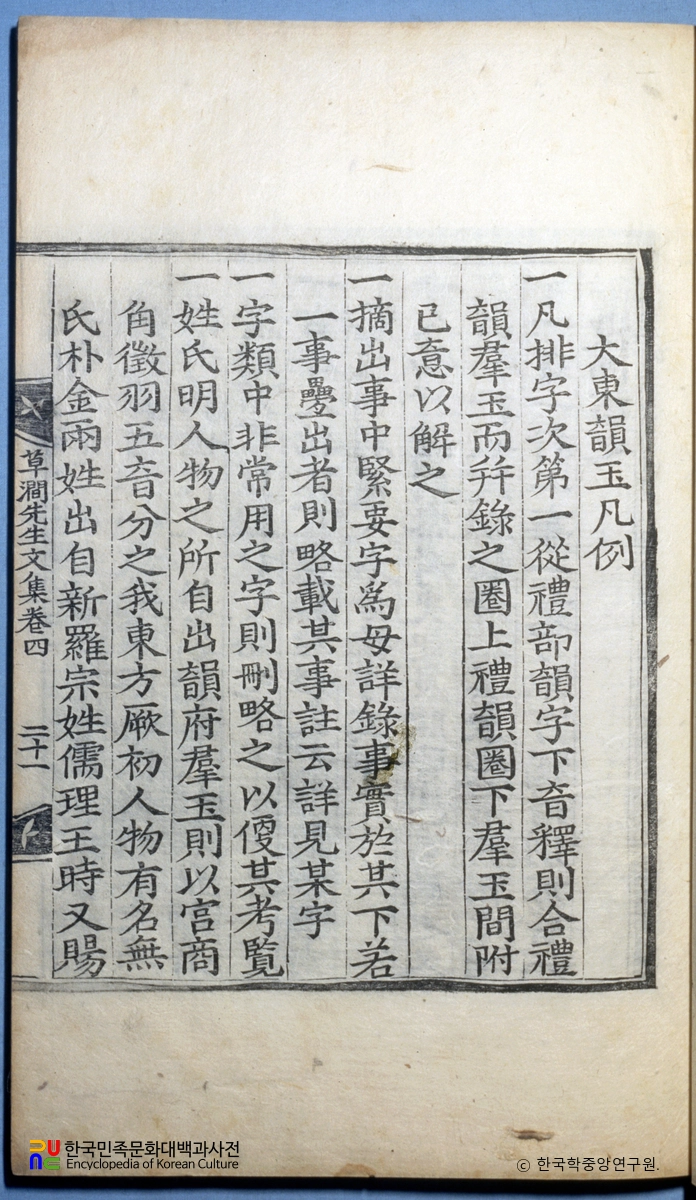 大東韻玉凡例
一凡排字次第一從禮部韻字下音釋則合禮
韻羣玉而幷錄之圈上禮韻圈下羣玉間附
已意以解之
一摘出事中緊要字爲母詳錄事實於其下若
一事疊出者則略載其事註云詳見某字
一字類中非常用之字則刪略之以便其考覽
一姓氏明人物之所自出韻府羣玉則以宮商
角徵羽五音分之我東方厥初人物有名無
氏朴金兩姓出自新羅宗姓儒理王時又賜
草澗先生文集卷四
二十一
한국민족문화대백과사전
Encyclopedia of Korean Culture
© 한국학중앙연구원.